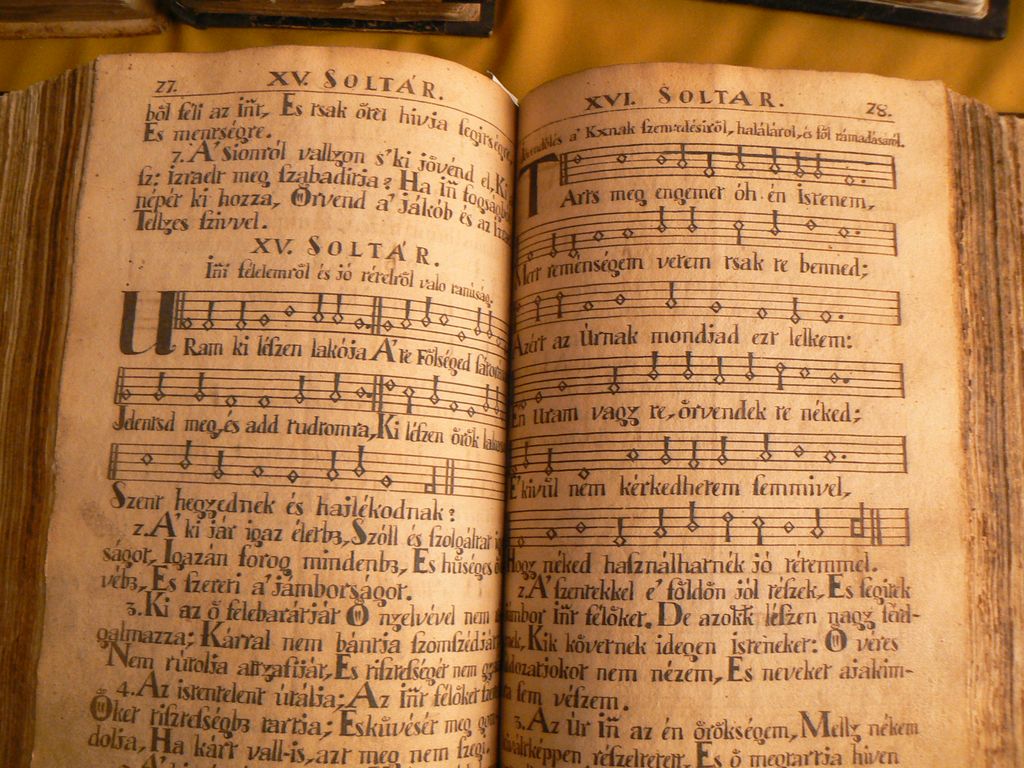 77. XV. SOLTÁR.
ből féli az iñt, Es tsak őtet hivja segitségre,
Es mentségre.
7. A' Sionról vallyon s' ki jővénd el, Ki
sz: izraélt meg szabadítja? Ha iñ fogságból
népét ki hozza, Örvend a' jákób és az Izra
Tellyes szivvel.
XV. SOLTÁR.
iñi félelemről és jó életről való tanúság.
URam ki lészen lakója A' te Fölséged sátorá
Jelentsd meg, és add tudtomra, Ki lészen örök lakosa
Szent hegyednek és hajlékodnak?
2. A' ki jár igaz életbē, Szóll és szolgáltat i
ságot, Igazán forog mindenbē, Es hűséges ő
vébē, Es szereti a' jámborságot.
3. Ki az ő felebarátját Ő nyelvével nem
galmazza; Kárral nem bántja szomszédját
Nem rútolja attyafiját, Es tisztességét nem
4. Az istentelent útálja; Az iñt félőket
Őket tisztességbē tartja; Esküvését meg
dolja, Ha kárt vall-is, azt meg nem szegi.
XVI. SOLTÁR. 28.
a' Kxnak szenvedésiről, haláláról, és föl támadásáról.
TArts meg engemet óh én Istenem,
Mert reménségem vetem tsak te benned;
Azért az Úrnak mondjad ezt lelkem:
Én Uram vagy te, örvendek te néked;
E' kivűl nem kérkedhetem semmivel,
Hogy néked használhatnék jó tétemmel.
2. A' szentekkel e' földön jól tészek, Es segitek
jámbor iñt félőket. De azokk lészen nagy
nek, Kik kővetnek idegen isteneket: Ő véres
áldozatjokot nem nézem, Es neveket ajakim-
ra sem vészem.
3. Az Úr iñ az én örökségem, Melly nékem
kiváltképpen részeltetett, Es ő megtartja hiven